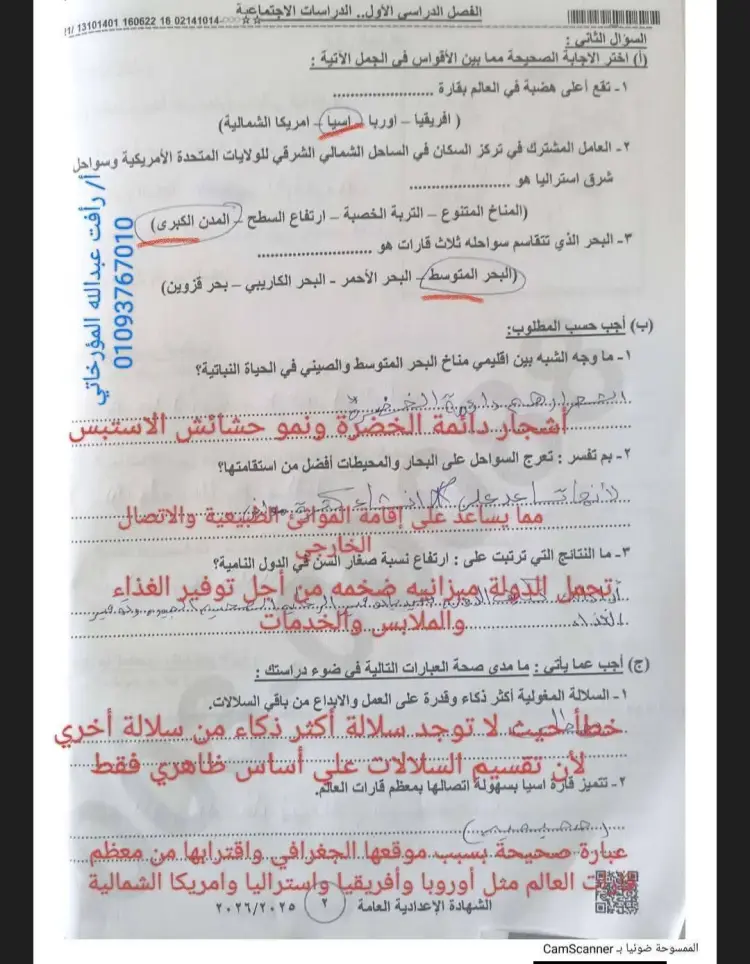 الفصل الدراسي الأول.. الدراسات الاجتماعية
21/ 13101401 160622 18 02141014
السؤال الثاني :
(أ) اختر الاجابة الصحيحة مما بين الأقواس في الجمل الآتية :
١- تقع أعلى هضبة في العالم بقارة ......................
( افريقيا – اوربا – اسيا – امريكا الشمالية)
٢- العامل المشترك في تركز السكان في الساحل الشمالي الشرقي للولايات المتحدة الأمريكية وسواحل
شرق استراليا هو ......................
(المناخ المتنوع – التربة الخصبة – ارتفاع السطح – المدن الكبرى)
٣- البحر الذي تتقاسم سواحله ثلاث قارات هو ......................
(البحر المتوسط – البحر الأحمر - البحر الكاريبي – بحر قزوين)
أ/ رأفت عبدالله المؤرخاتي
01093767010
(ب) أجب حسب المطلوب:
١- ما وجه الشبه بين اقليمي مناخ البحر المتوسط والصيني في الحياة النباتية؟
أشجار دائمة الخضرة ونمو حشائش الاستبس
٢- بم تفسر : تعرج السواحل على البحار والمحيطات أفضل من استقامتها؟
مما يساعد على إقامة الموانئ الطبيعية والاتصال
الخارجي
٣- ما النتائج التي ترتبت على : ارتفاع نسبة صغار السن في الدول النامية؟
تحمل الدولة ميزانيه ضخمه من أجل توفير الغذاء
والملابس والخدمات
(ج) أجب عما يأتي : ما مدى صحة العبارات التالية في ضوء دراستك :
١- السلالة المغولية أكثر ذكاء وقدرة على العمل والابداع من باقي السلالات.
خطأ حيث لا توجد سلالة أكثر ذكاء من سلالة أخري
لأن تقسيم السلالات على أساس ظاهري فقط
٢- تتميز قارة اسيا بسهولة اتصالها بمعظم قارات العالم.
عبارة صحيحة بسبب موقعها الجغرافي واقترابها من معظم
العالم مثل أوروبا وأفريقيا واستراليا وامريكا الشمالية
الشهادة الإعدادية العامة
٢
٢٠٢٦/٢٠٢٥
الممسوحة ضوئيا بـ CamScanner